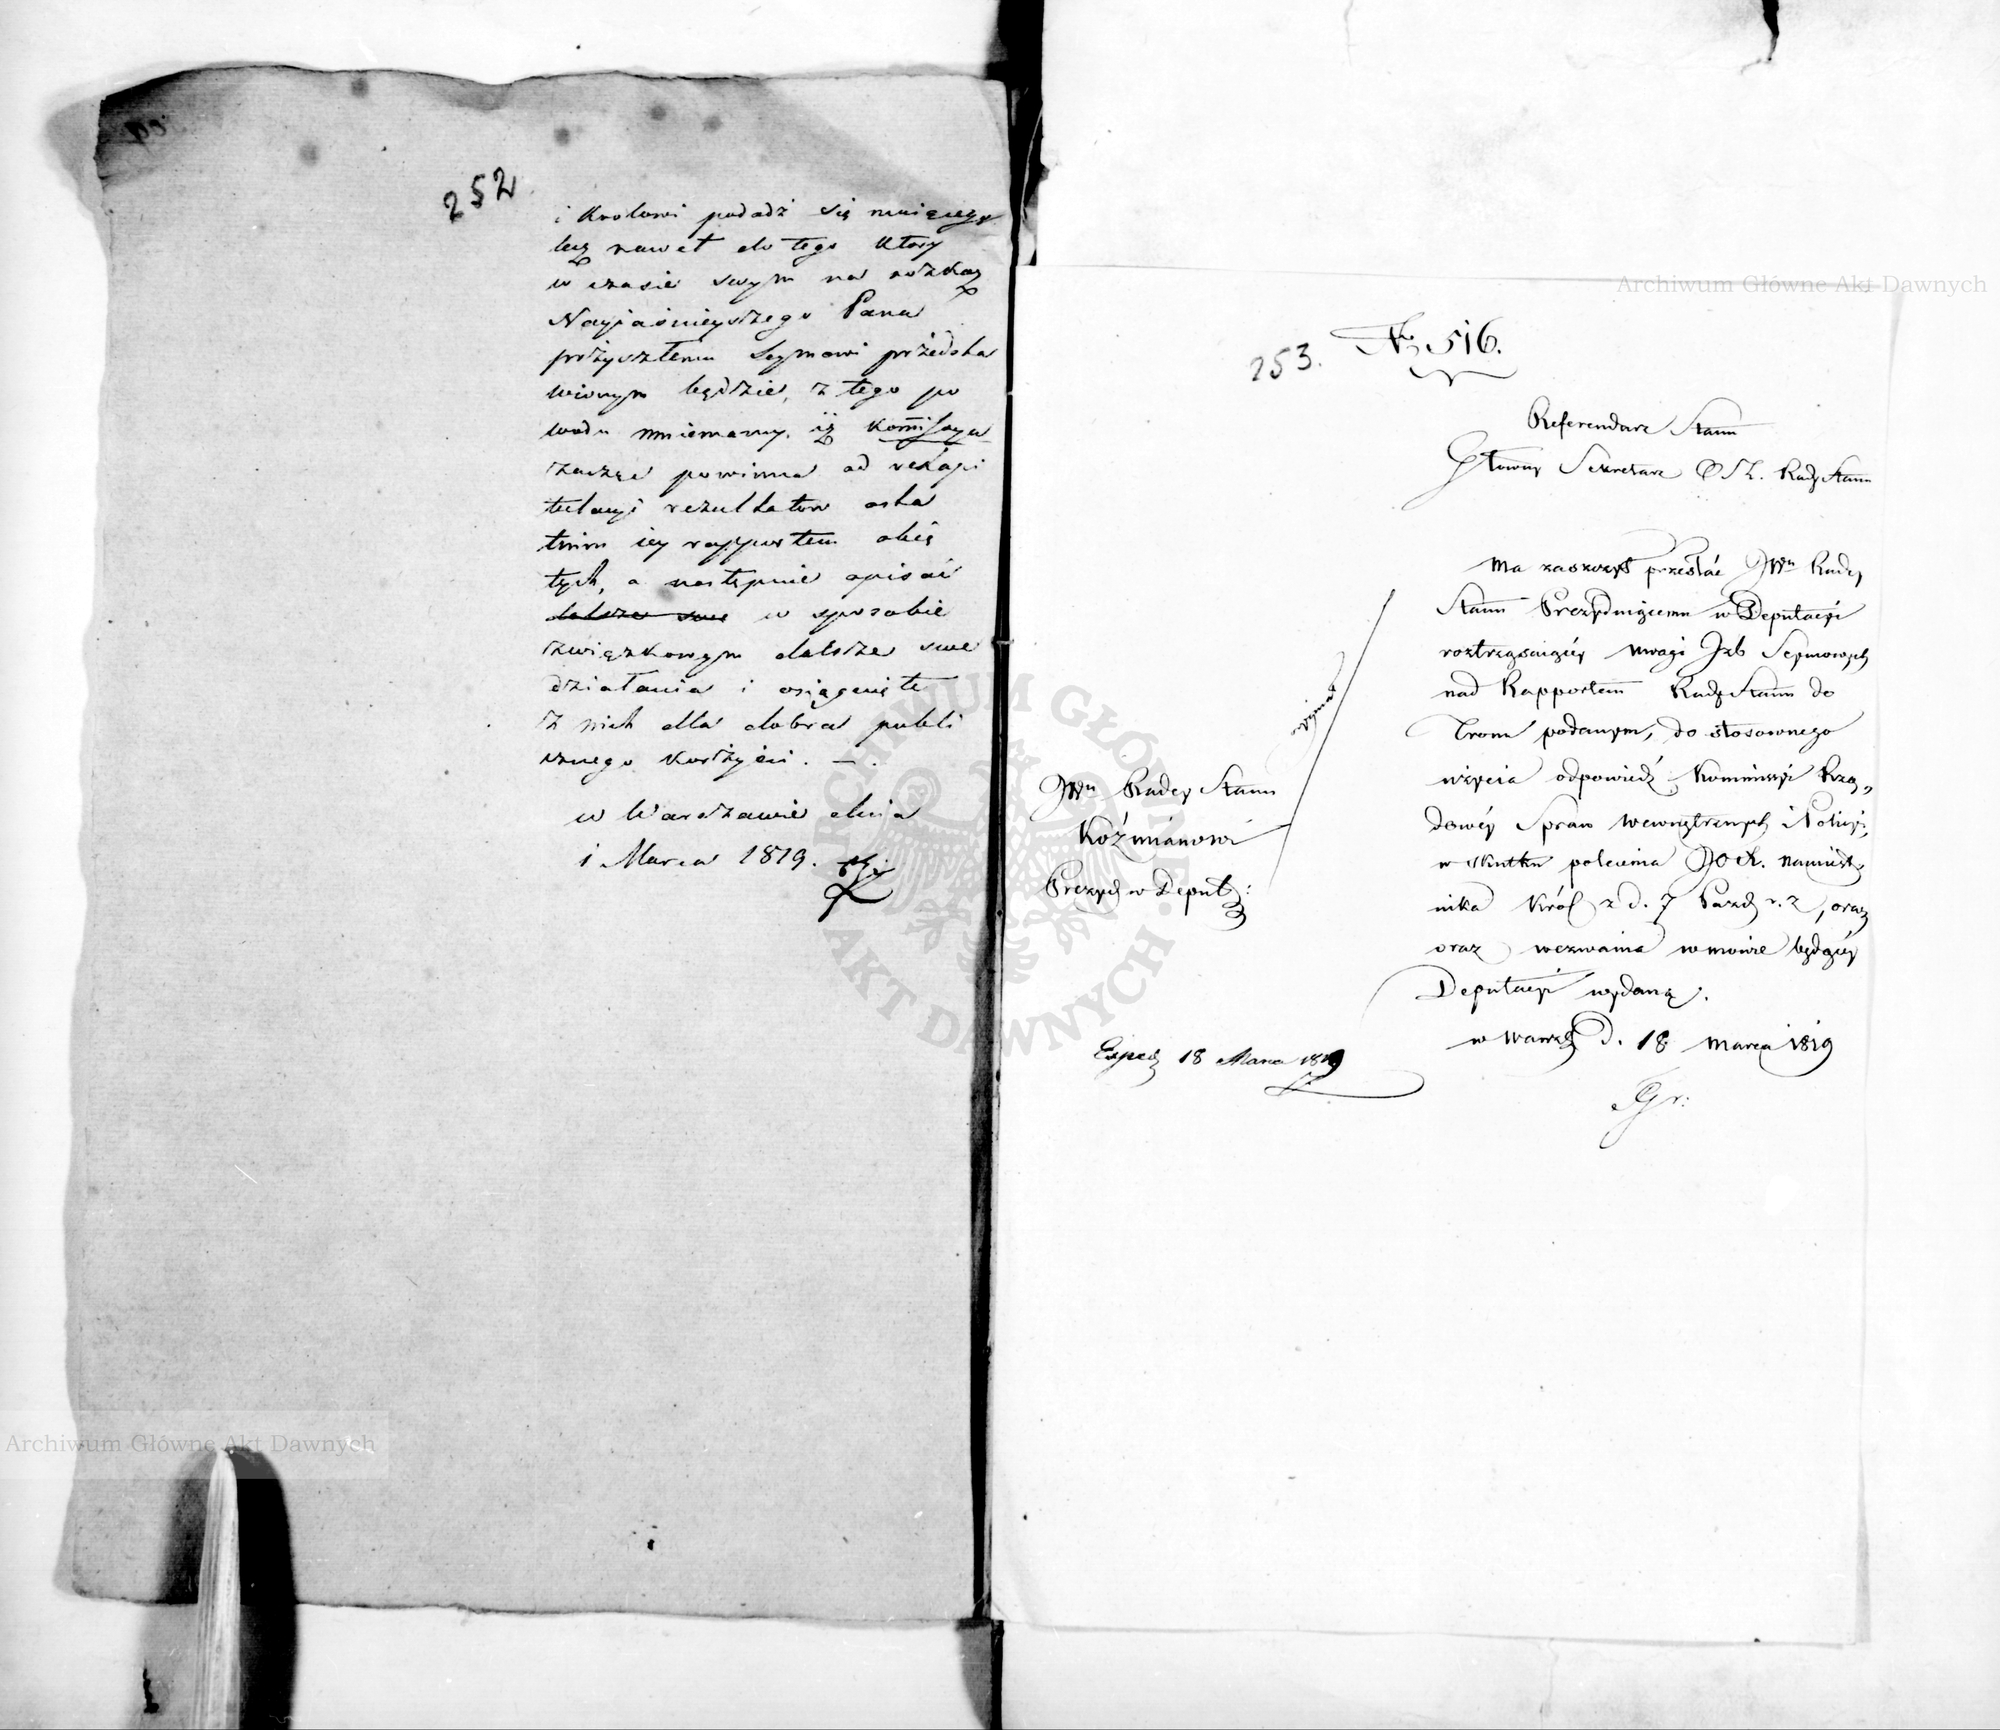 252
i Krolowi podadź się maiącego
lecz nawet do tego który
w czasie swym na rozkaz
Nayiaśnieyszego Pana
przyszłemu Seymowi przedsta
wionym będzie, z tego po
wodu mniemamy, iż Kommissya
zacząć powinna od rekapi
tulacyi rezultatow osta
tnim iey rapportem obię
tych, a następnie opisać
dalsze swe w sposobie
związkowym dalsze swe
działania i osiągnięte
z nich dla dobra publi
cznego korzyści. —.
w Warszawie dnia
1 Marca 1819.
253. No 516.
Referendarz Stanu
Główny Sekretarz Rady Stanu
Ma zaszczyt przesłać JWu Radcy
Stanu Prezyduiącemu w Deputacyi
roztrząsaiącéy uwagi Izb Seymowych
nad Rapportem Rady Stanu do
Tronu podanym, do stosownego
użycia odpowiedź Kommissyi Rzą„
dowéy Spraw Wewnętrznych i Policyi,
w skutku polecenia JOX. Namiest„
nika Król z d. 7 Paźdz r. z, oraz
oraz wezwania w mowie będącéy
Deputacyi wydaną.
w Warsz D. 18 Marca 1819
Gr:
JWu Radcy Stanu
Koźmianowi
Prezyd w Deput:
Exped 18 Marca 1819
Archiwum Główne Akt Dawnych
Archiwum Główne Akt Dawnych
ARCHIWUM GŁÓWNE AKT DAWNYCH